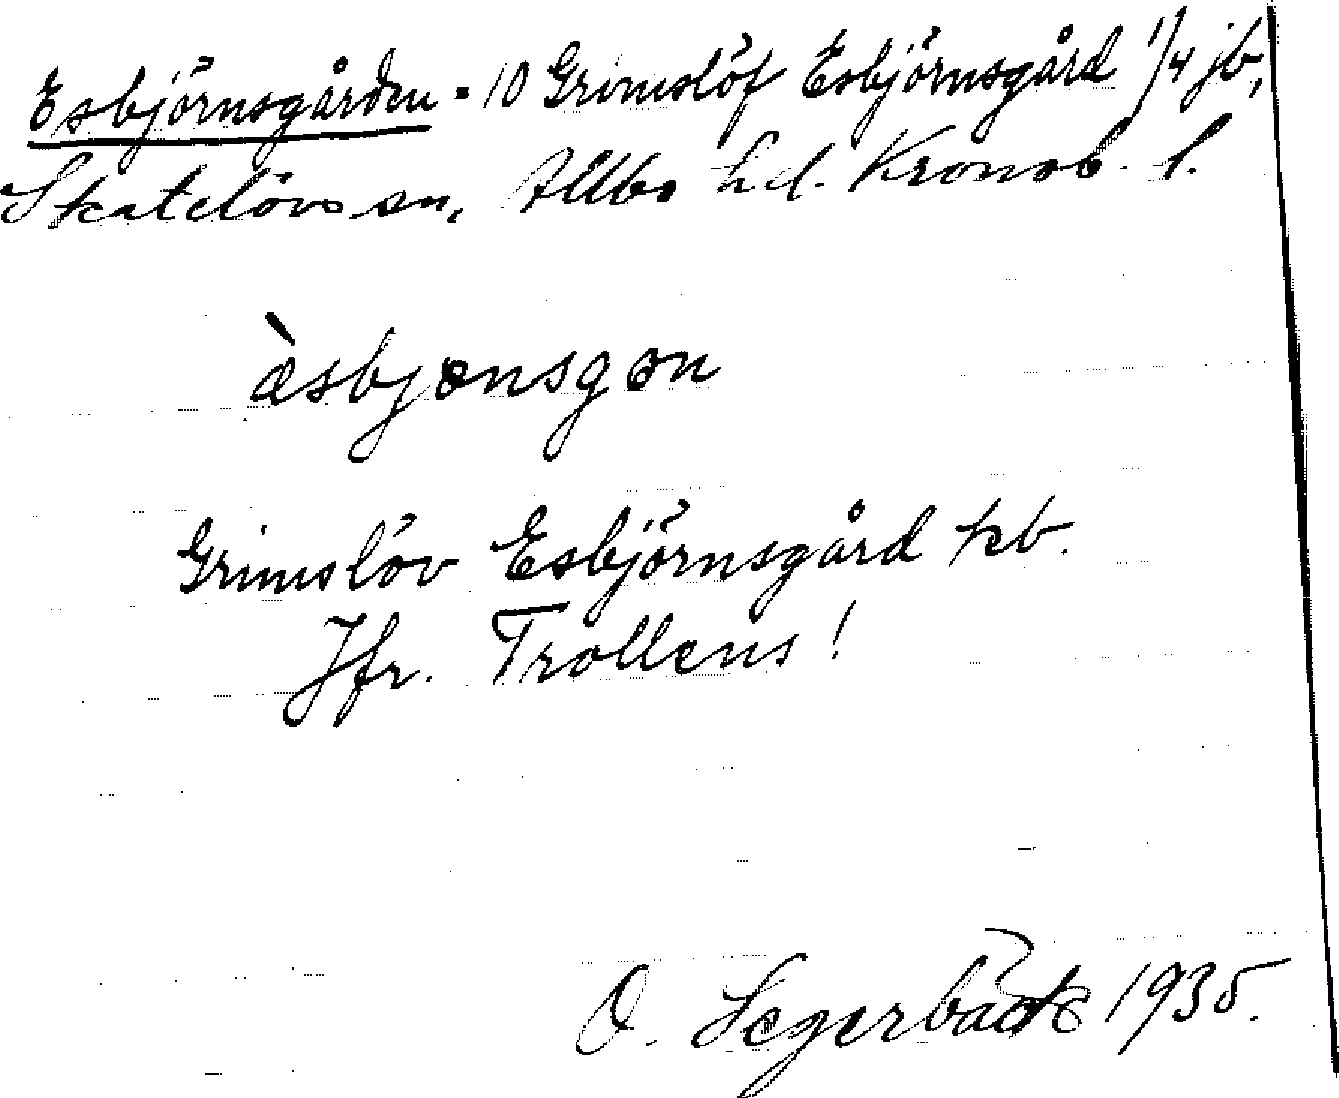 Esbjörnsgården = 10 Grimslöf Esbjörnsgård 1/4 jb,
Skatelövs sn, Allbo hd. Kronob. l.
àsbjonsgon
Grimslöv Esbjörnsgård kb.
Jfr. Trollens!
O. Segerbäck 1935.